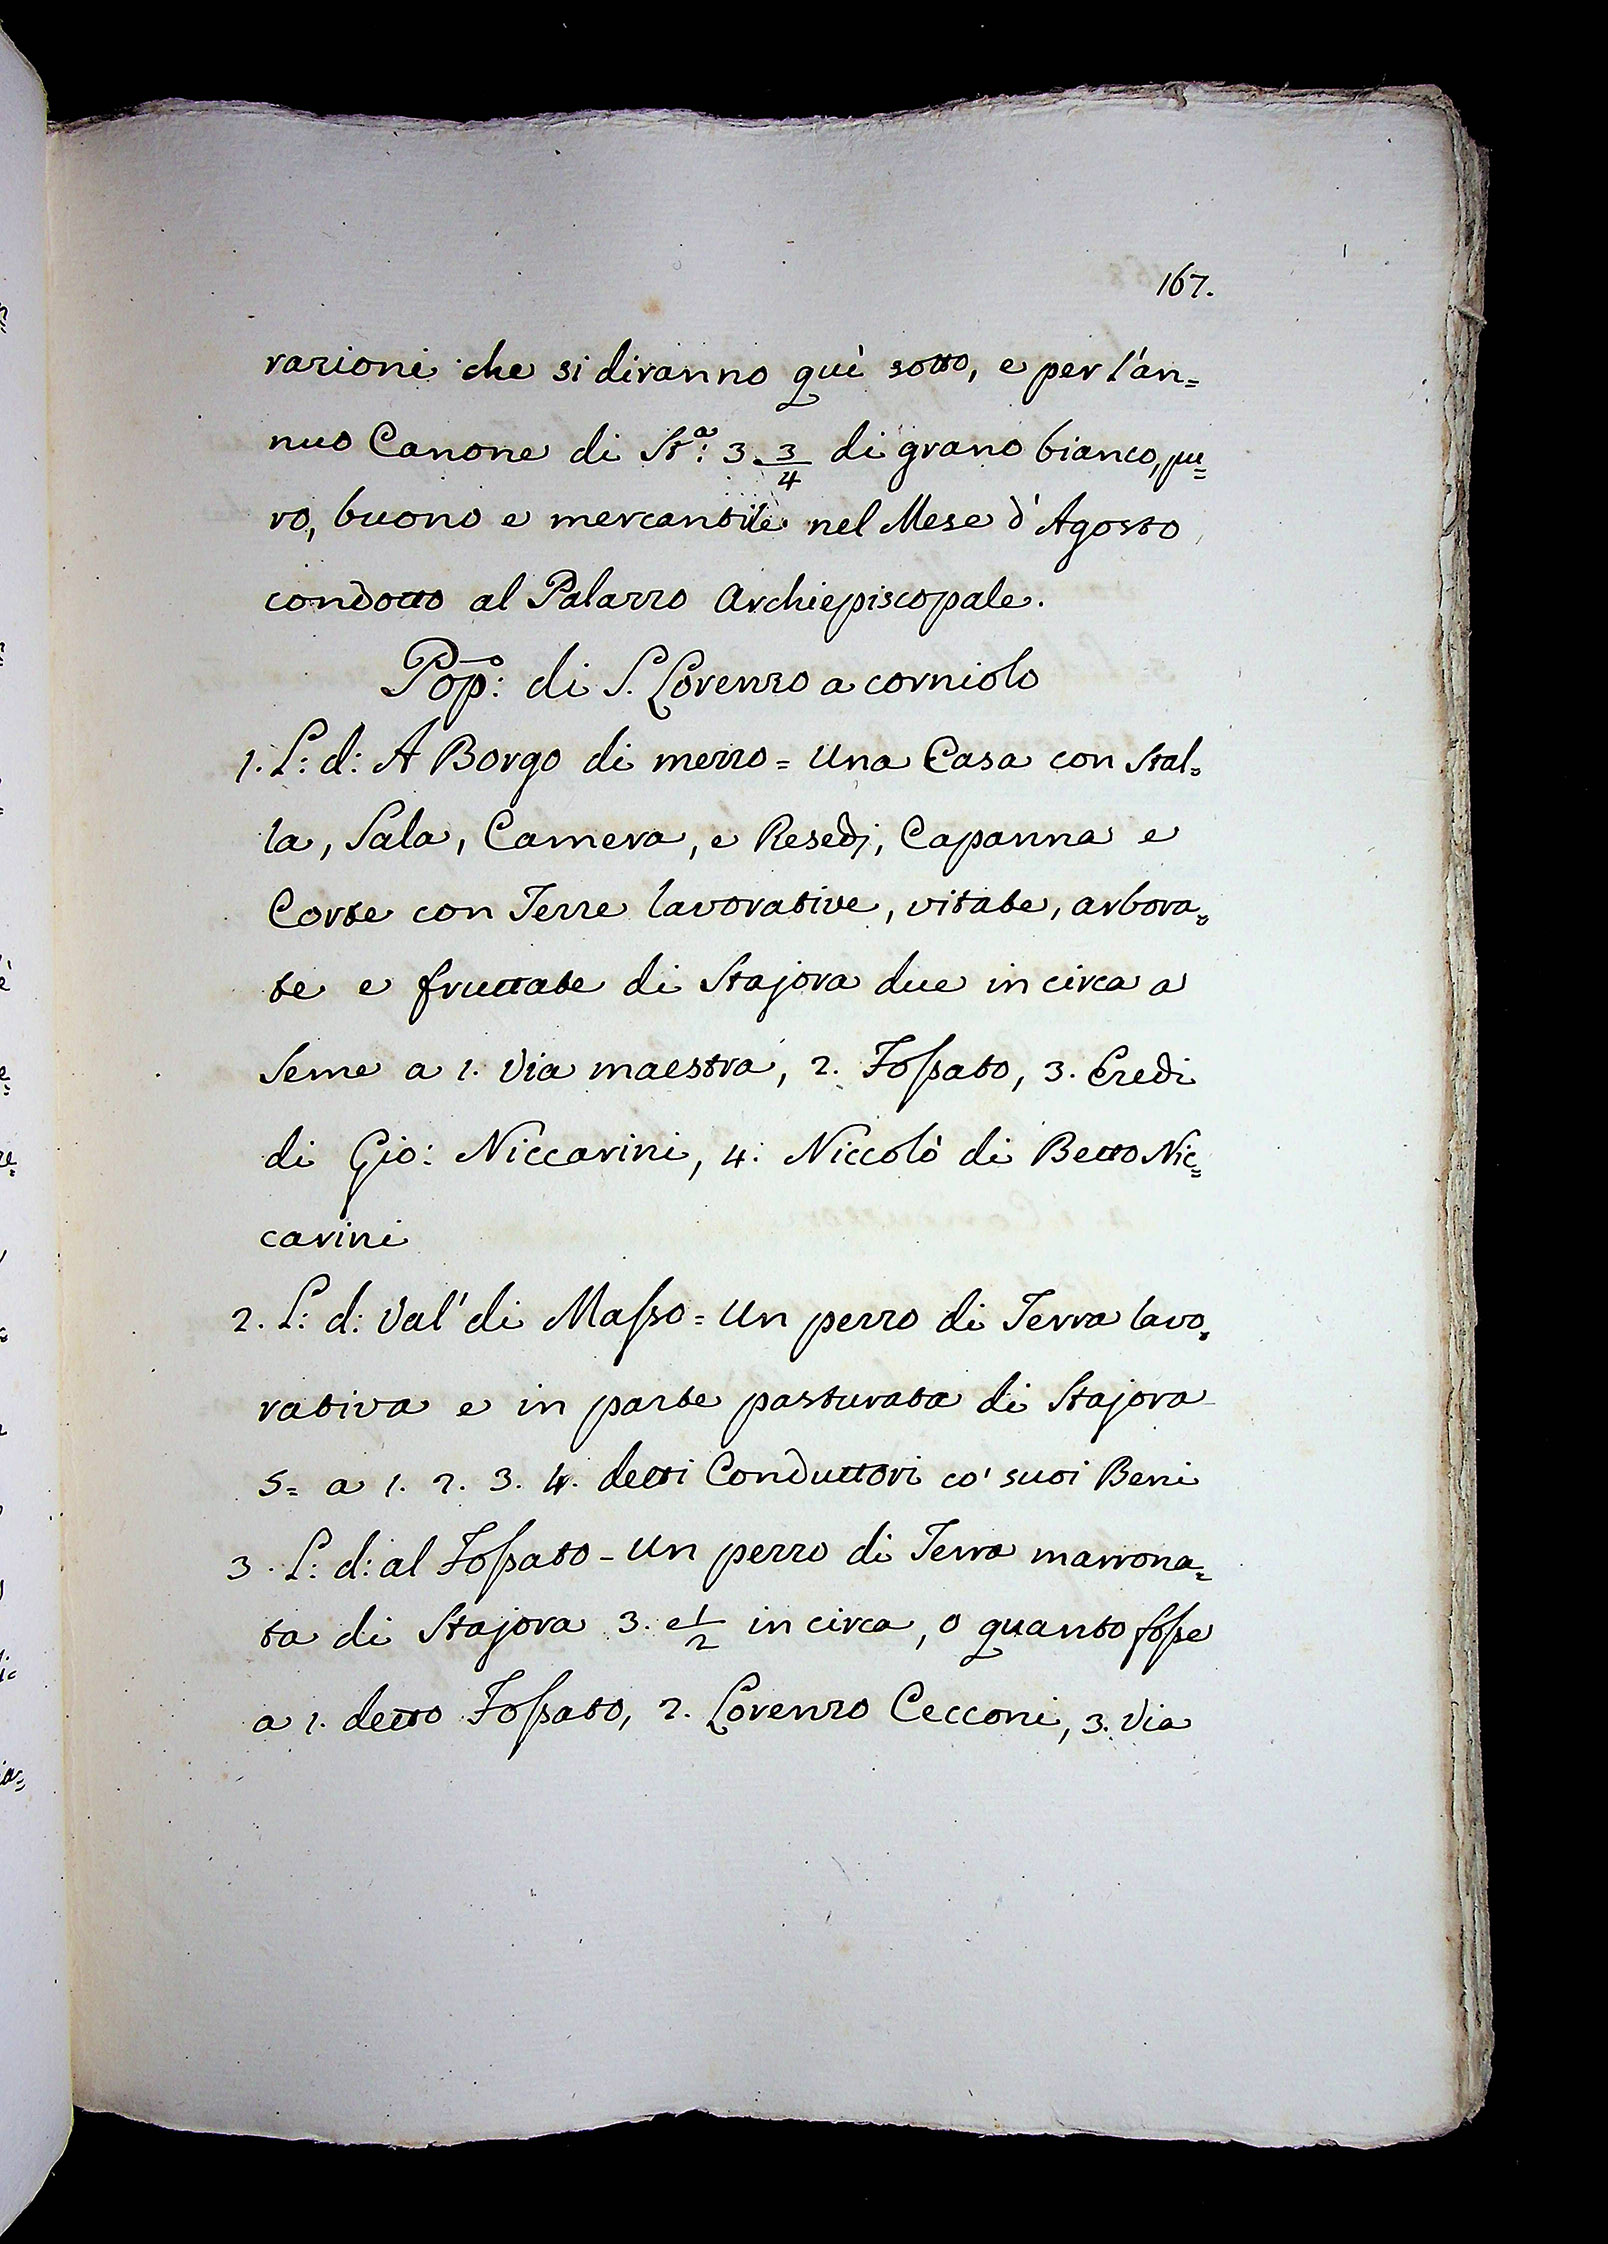 167.
razioni che si diranno quì sotto, e per l'an=
nuo Canone di St.ª: 3 3/4 di grano bianco, pu=
ro, buono e mercantile nel Mese d'Agosto
condotto al Palazzo Archiepiscopale.
Pop.o: di S. Lorenzo a corniolo
1. L: d: A Borgo di mezzo = Una Casa con Stal=
la, Sala, Camera, e Resedj, Capanna e
Corte con Terre lavorative, vitate, arbora=
te e fruttate di Stajora due in circa a
Seme a 1. Via maestra, 2. Fossato, 3. Eredi
di Gio: Niccarini, 4. Niccolò di Betto Nic=
carini
2. L: d: Val' di Masso = Un pezzo di Terra lavo=
rativa e in parte pasturata di Stajora
5= a 1. 2. 3. 4. detti Conduttori co' suoi Beni
3. L: d: al Fossato - Un pezzo di Terra marrona=
ta di Stajora 3. e 1/2 in circa, o quanto fosse
a 1. detto Fossato, 2. Lorenzo Cecconi, 3. Via